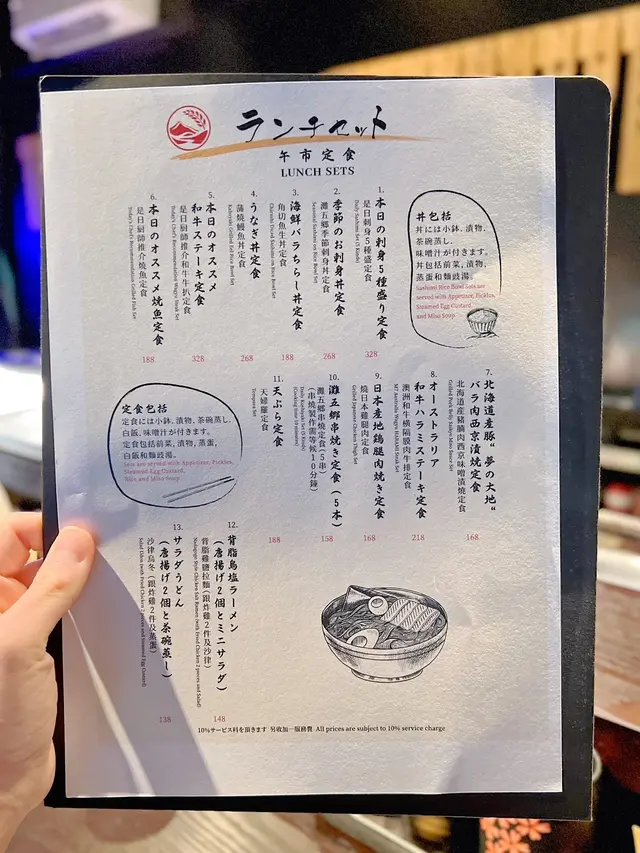 ランチセット
午市定食
LUNCH SETS
丼包括
丼には小鉢、漬物、
茶碗蒸し、
味噌汁が付きます。
丼包括前菜，漬物，
蒸蛋和麵豉湯。
Sushimi Rice Bowl Sets are
served with Appetizer, Pickles,
Steamed Egg Custard,
and Miso Soup.
1.
本日の刺身5種盛り定食
是日刺身5種盛定食
Daily Sashimi Set (5 Kinds)
328
2.
季節のお刺身丼定食
灘五鄉季節刺身丼定食
Seasonal Sashimi on Rice Bowl Set
268
3.
海鮮バラちらし丼定食
角切魚生丼定食
Chirashi Diced Sashimi on Rice Bowl Set
188
4.
うなぎ丼定食
蒲燒鰻魚丼定食
Kabayaki Grilled Eel Rice Bowl Set
268
5.
本日のオススメ
和牛ステーキ定食
是日廚師推介和牛牛扒定食
Today's Chef's Recommendation Wagyu Steak Set
328
6.
本日のオススメ焼魚定食
是日廚師推介燒魚定食
Today's Chef's Recommendation Grilled Fish Set
188
7.
北海道産豚“夢の大地“
バラ肉西京漬焼定食
北海道産豬腩肉西京味噌漬燒定食
Grilled Pork Belly Saikyo Miso Sauce Set
168
8.
オーストラリア
和牛ハラミステーキ定食
澳洲和牛橫隔膜肉牛排定食
M7 Australia Wagyu HARAMI Steak Set
218
9.
日本産地鶏腿肉焼き定食
燒日本雞腿肉定食
Grilled Japanese Chicken Thigh Set
168
10.
灘五郷串焼き定食（5本）
灘五鄉串燒定食（5串）
（串燒製作需等候10分鐘）
Daily Kushiyaki Set (5 Kinds)
(Cooking time 10 minutes)
158
11.
天ぷら定食
天婦羅定食
Tempura Set
188
定食包括
定食には小鉢、漬物、茶碗蒸し、
白飯、味噌汁が付きます。
定食包括前菜，漬物，蒸蛋，
白飯和麵豉湯。
Sets are served with Appetizer, Pickles,
Steamed Egg Custard,
Rice and Miso Soup.
12.
背脂鳥塩ラーメン
（唐揚げ2個とミニサラダ）
背脂雞鹽拉麵（跟炸雞2件及沙律）
148
13.
サラダうどん
（唐揚げ2個と茶碗蒸し）
沙律烏冬（跟炸雞2件及蒸蛋）
Salad Udon (with Fried Chicken 2 pieces and Steamed Egg Custard)
138
10%サービス料を頂きます 另收加一服務費 All prices are subject to 10% service charge